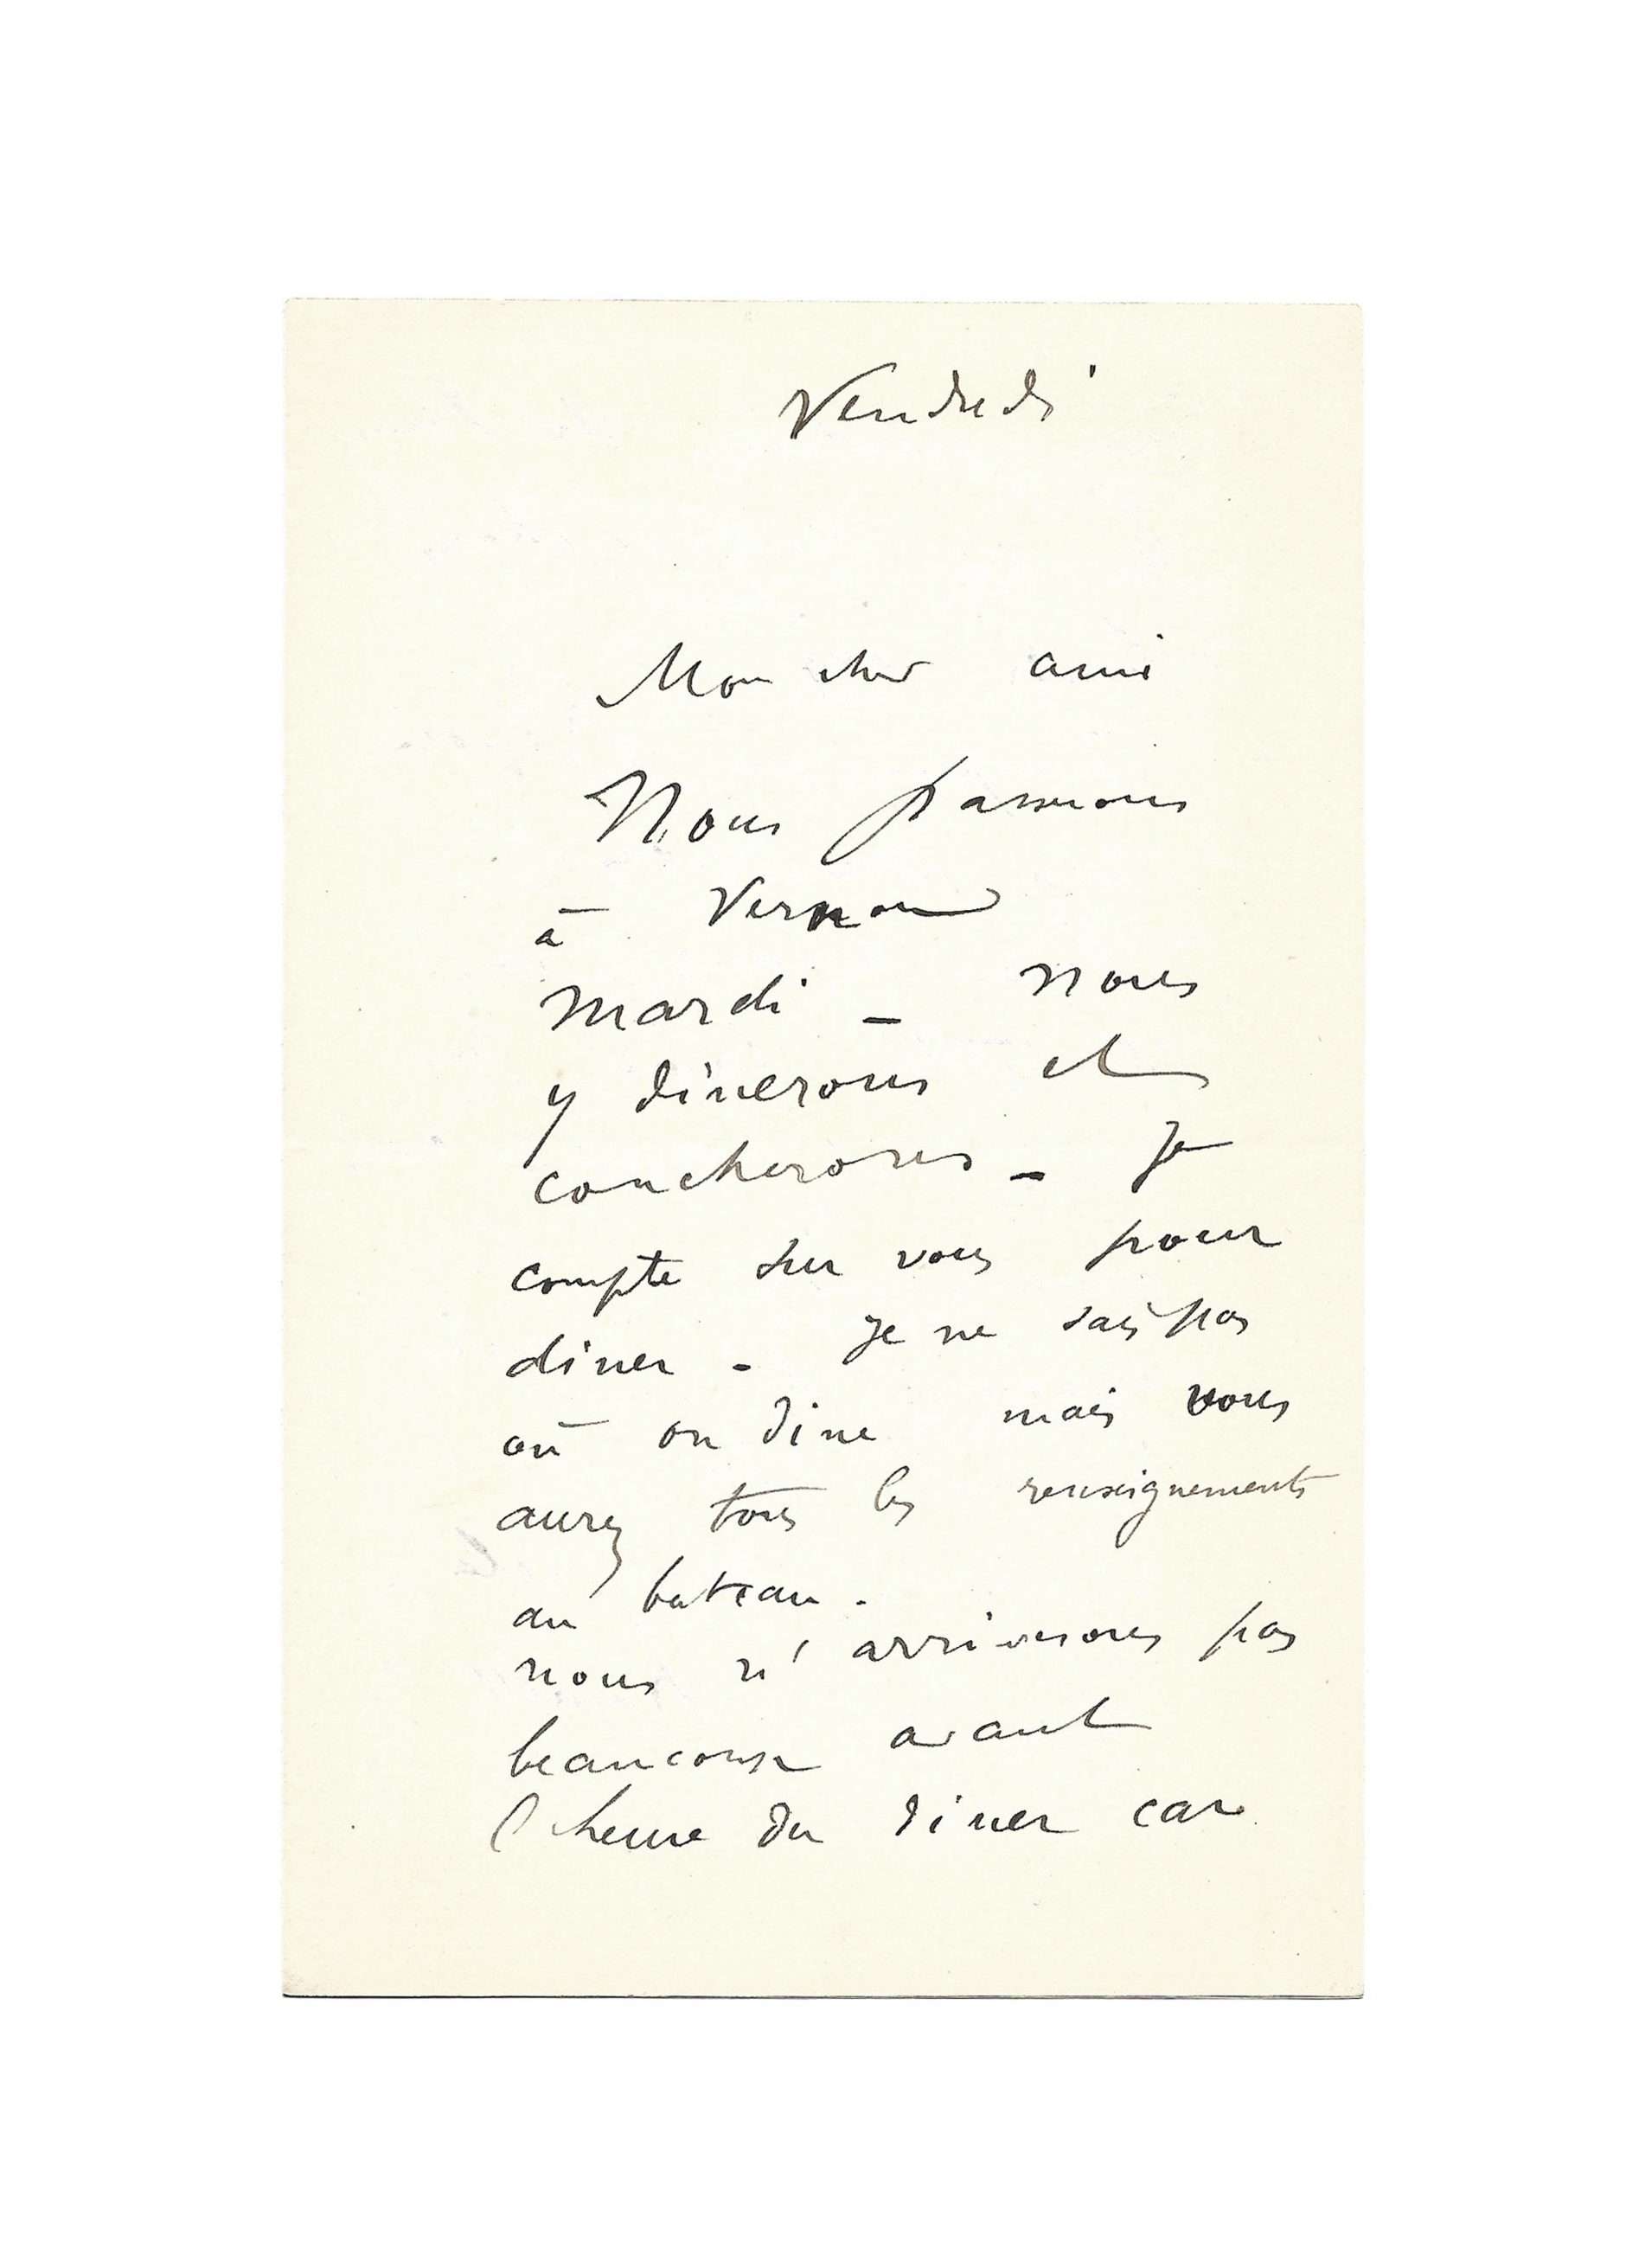 Vendredi
Mon cher ami
Nous passerons
à Vernon
mardi _ nous
y dinerons et
coucherons _ Je
compte sur vous pour
diner - Je ne sais pas
où on dine mais vous
aurez tous les renseignements
au bateau.
nous n'arriverons pas
beaucoup avant
l'heure du diner car